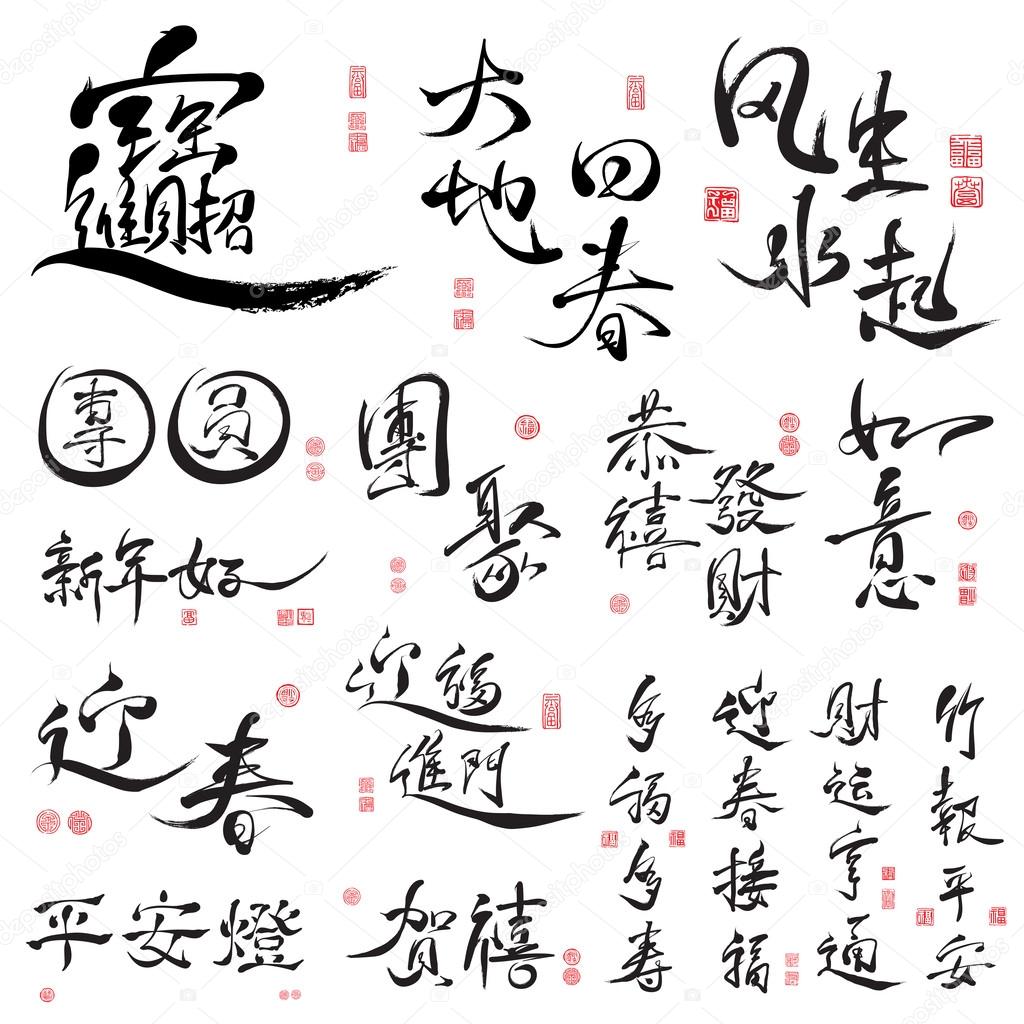 招財進寶
大地
回春
风生
水起
團圓
團聚
恭禧
發財
如意
新年好
迎春
迎福
進門
多福多寿
迎春接福
財运亨通
竹報平安
平安燈
贺禧
depositphotos